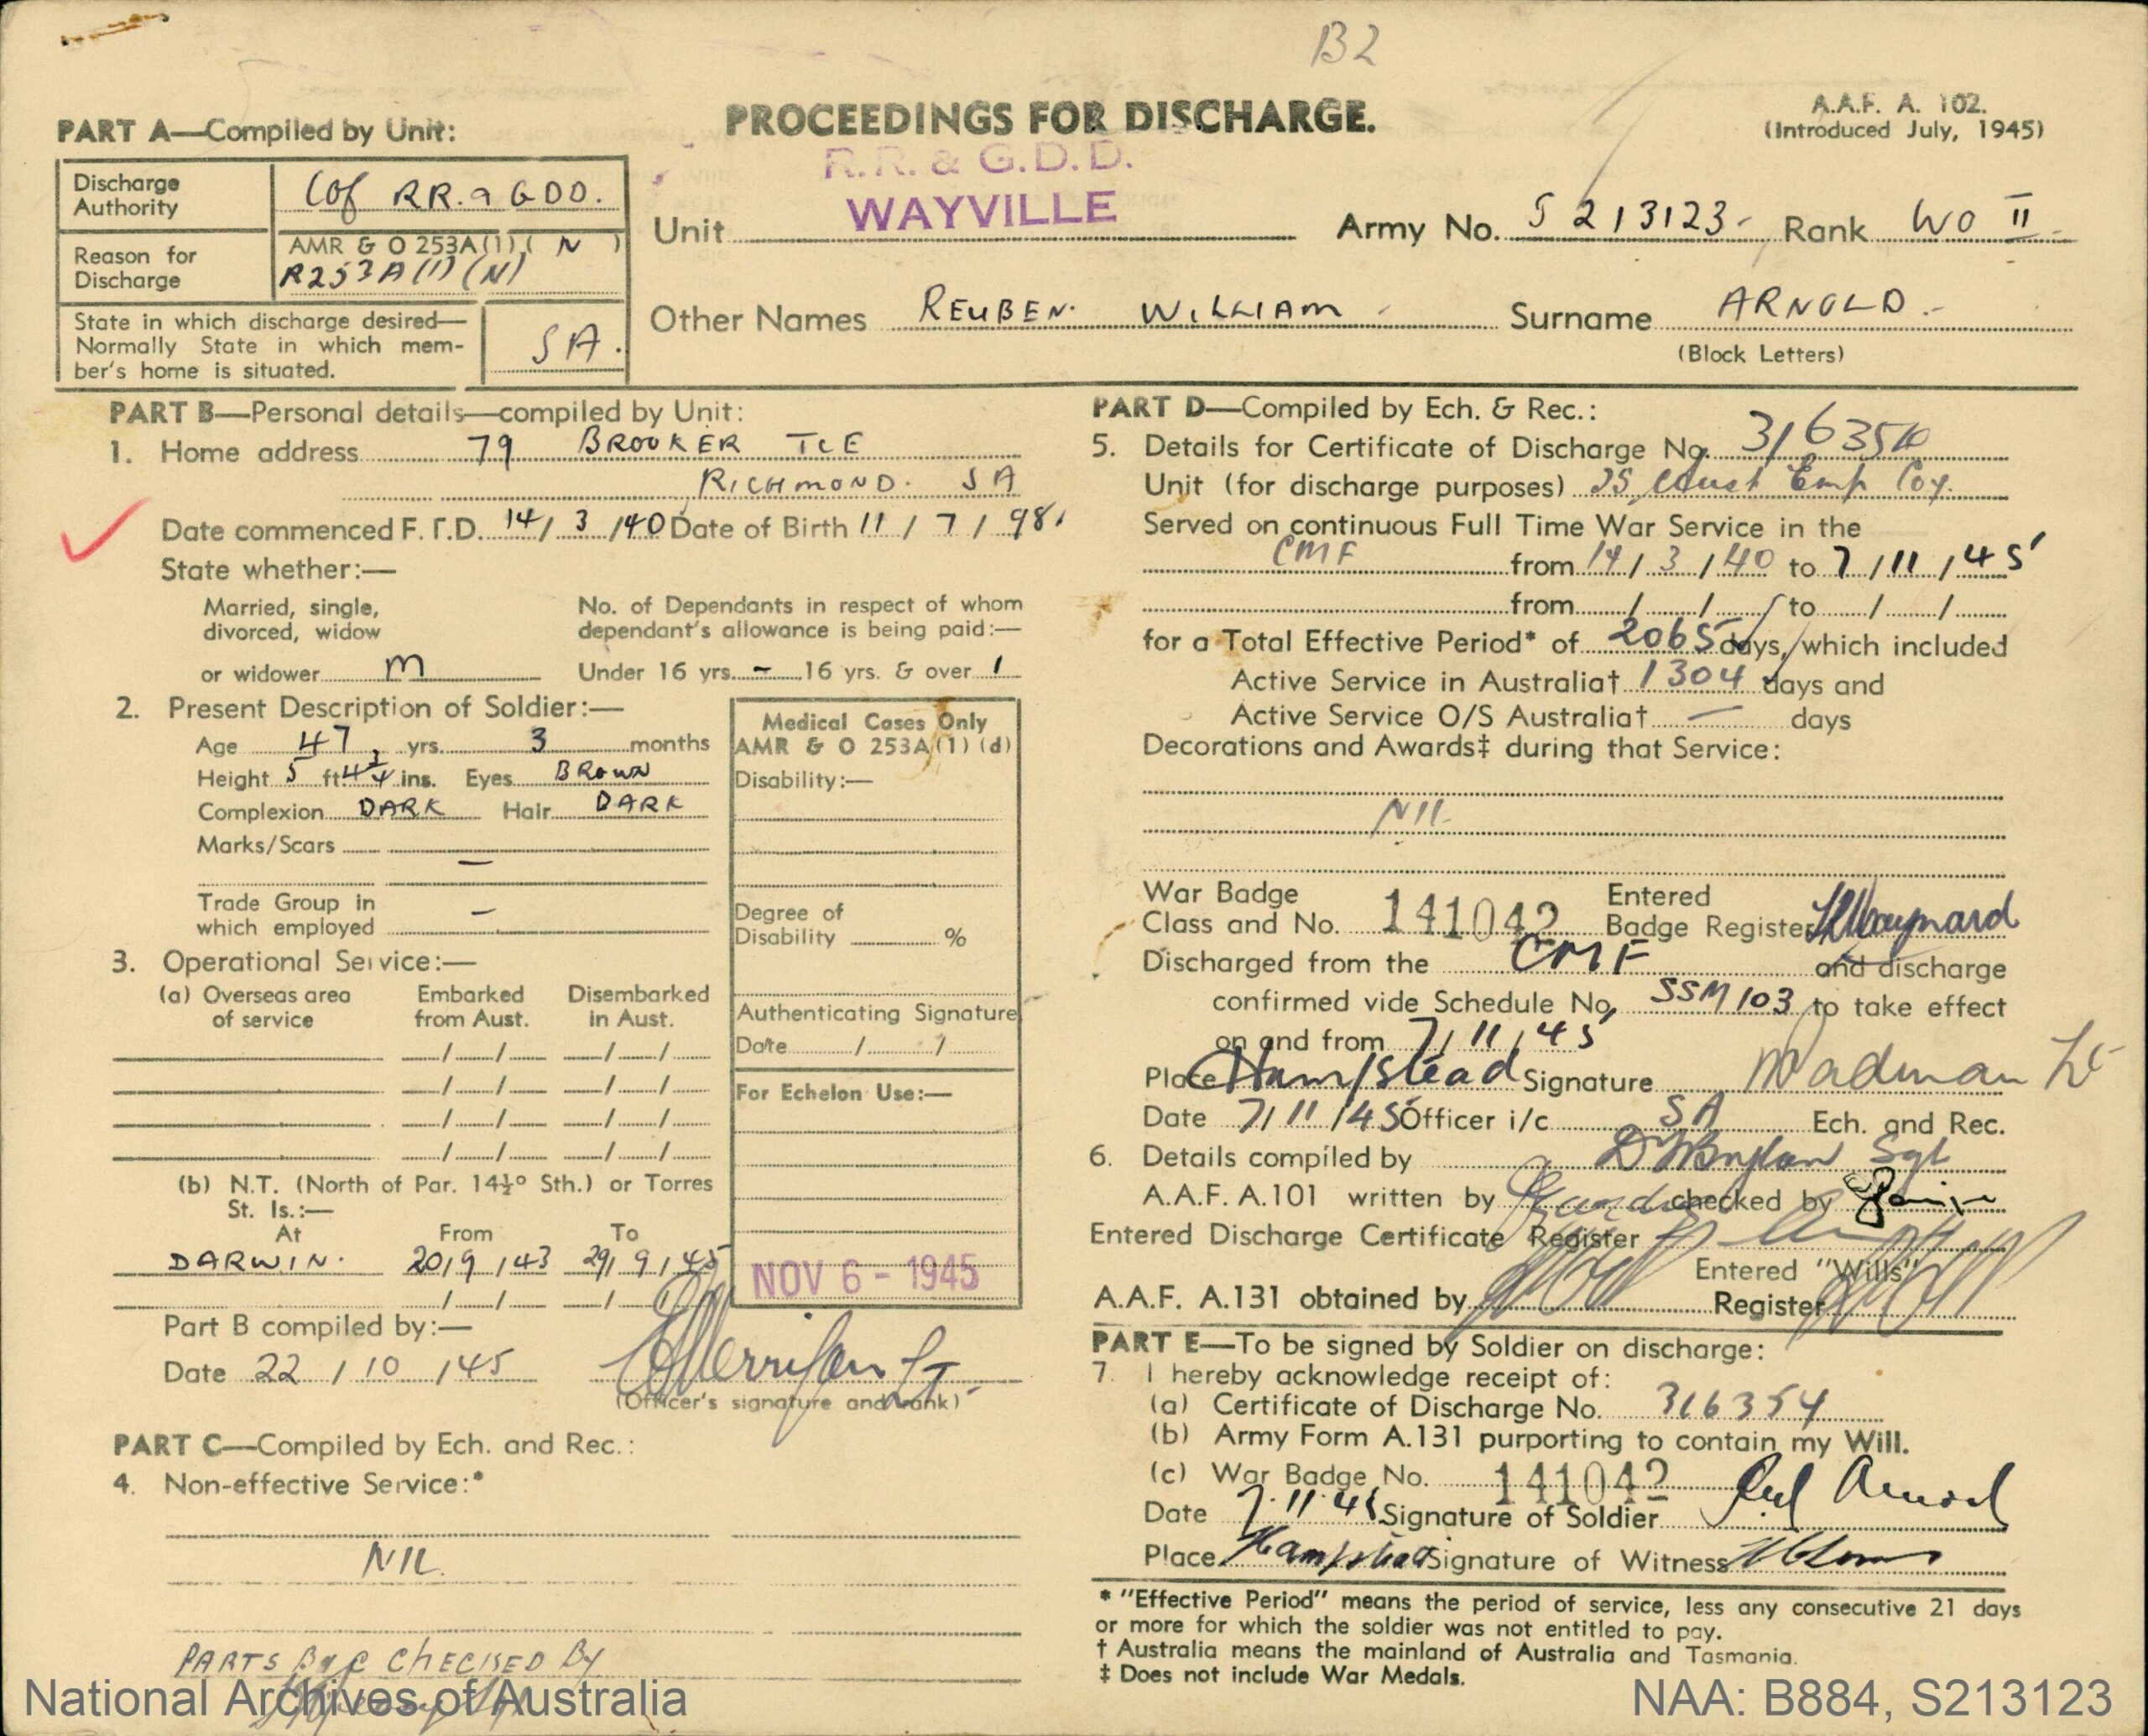 B2
PROCEEDINGS FOR DISCHARGE.
A.A.F. A. 102.
(Introduced July, 1945)
PART A—Compiled by Unit:
Discharge Authority
RR. & GDD.
Reason for Discharge
AMR & O 253A(1) ( N )
R253A(1)(N)
State in which discharge desired—
Normally State in which mem-
ber's home is situated.
SA.
R.R. & G.D.D.
WAYVILLE
Unit
Army No. S 213123 - Rank WO II
Other Names REUBEN WILLIAM
Surname ARNOLD.
(Block Letters)
PART B—Personal details—compiled by Unit:
1. Home address 79 BROOKER TCE
RICHMOND. SA
Date commenced F.T.D. 14/ 3 /40 Date of Birth 11 / 7 / 98
State whether:—
Married, single,
divorced, widow
or widower M
No. of Dependants in respect of whom
dependant's allowance is being paid:—
Under 16 yrs. - 16 yrs. & over 1
2. Present Description of Soldier:—
Age 47 yrs. 3 months
Height 5 ft. ins. Eyes BROWN
Complexion DARK Hair DARK
Marks/Scars —
Trade Group in
which employed —
Medical Cases Only
AMR & O 253A(1) (d)
Disability:—
Degree of
Disability %
Authenticating Signature
Date / /
For Echelon Use:—
NOV 6 - 1945
3. Operational Service:—
(a) Overseas area
of service
Embarked
from Aust.
Disembarked
in Aust.
(b) N.T. (North of Par. 14½° Sth.) or Torres
St. Is.:—
At From To
DARWIN. 20/9/43 29/9/45
Part B compiled by:—
Date 22 / 10 / 45
(Officer's signature and rank)
PART C—Compiled by Ech. and Rec.:
4. Non-effective Service:*
NIL.
PARTS B & C CHECKED BY
PART D—Compiled by Ech. & Rec.:
5. Details for Certificate of Discharge No. 316354
Unit (for discharge purposes) Aust Emp Coy.
Served on continuous Full Time War Service in the
CMF from 14/ 3 /40 to 7 / 11 / 45
from / / to / /
for a Total Effective Period* of 2065 days, which included
Active Service in Australia† 1304 days and
Active Service O/S Australia† — days
Decorations and Awards‡ during that Service:
Nil
War Badge
Class and No. 141042
Entered
Badge Register
Discharged from the CMF and discharge
confirmed vide Schedule No. SSM 103 to take effect
on and from 7 / 11 / 45
Place Hampstead Signature
Date 7/ 11 /45 Officer i/c SA Ech. and Rec.
6. Details compiled by Sgt
A.A.F. A.101 written by checked by
Entered Discharge Certificate Register
A.A.F. A.131 obtained by
Entered "Wills"
Register
PART E—To be signed by Soldier on discharge:
7. I hereby acknowledge receipt of:
(a) Certificate of Discharge No. 316354
(b) Army Form A.131 purporting to contain my Will.
(c) War Badge No. 141042
Date 7.11.45 Signature of Soldier Arnold
Place Hampstead Signature of Witness
* "Effective Period" means the period of service, less any consecutive 21 days
or more for which the soldier was not entitled to pay.
† Australia means the mainland of Australia and Tasmania.
‡ Does not include War Medals.
National Archives of Australia
NAA: B884, S213123